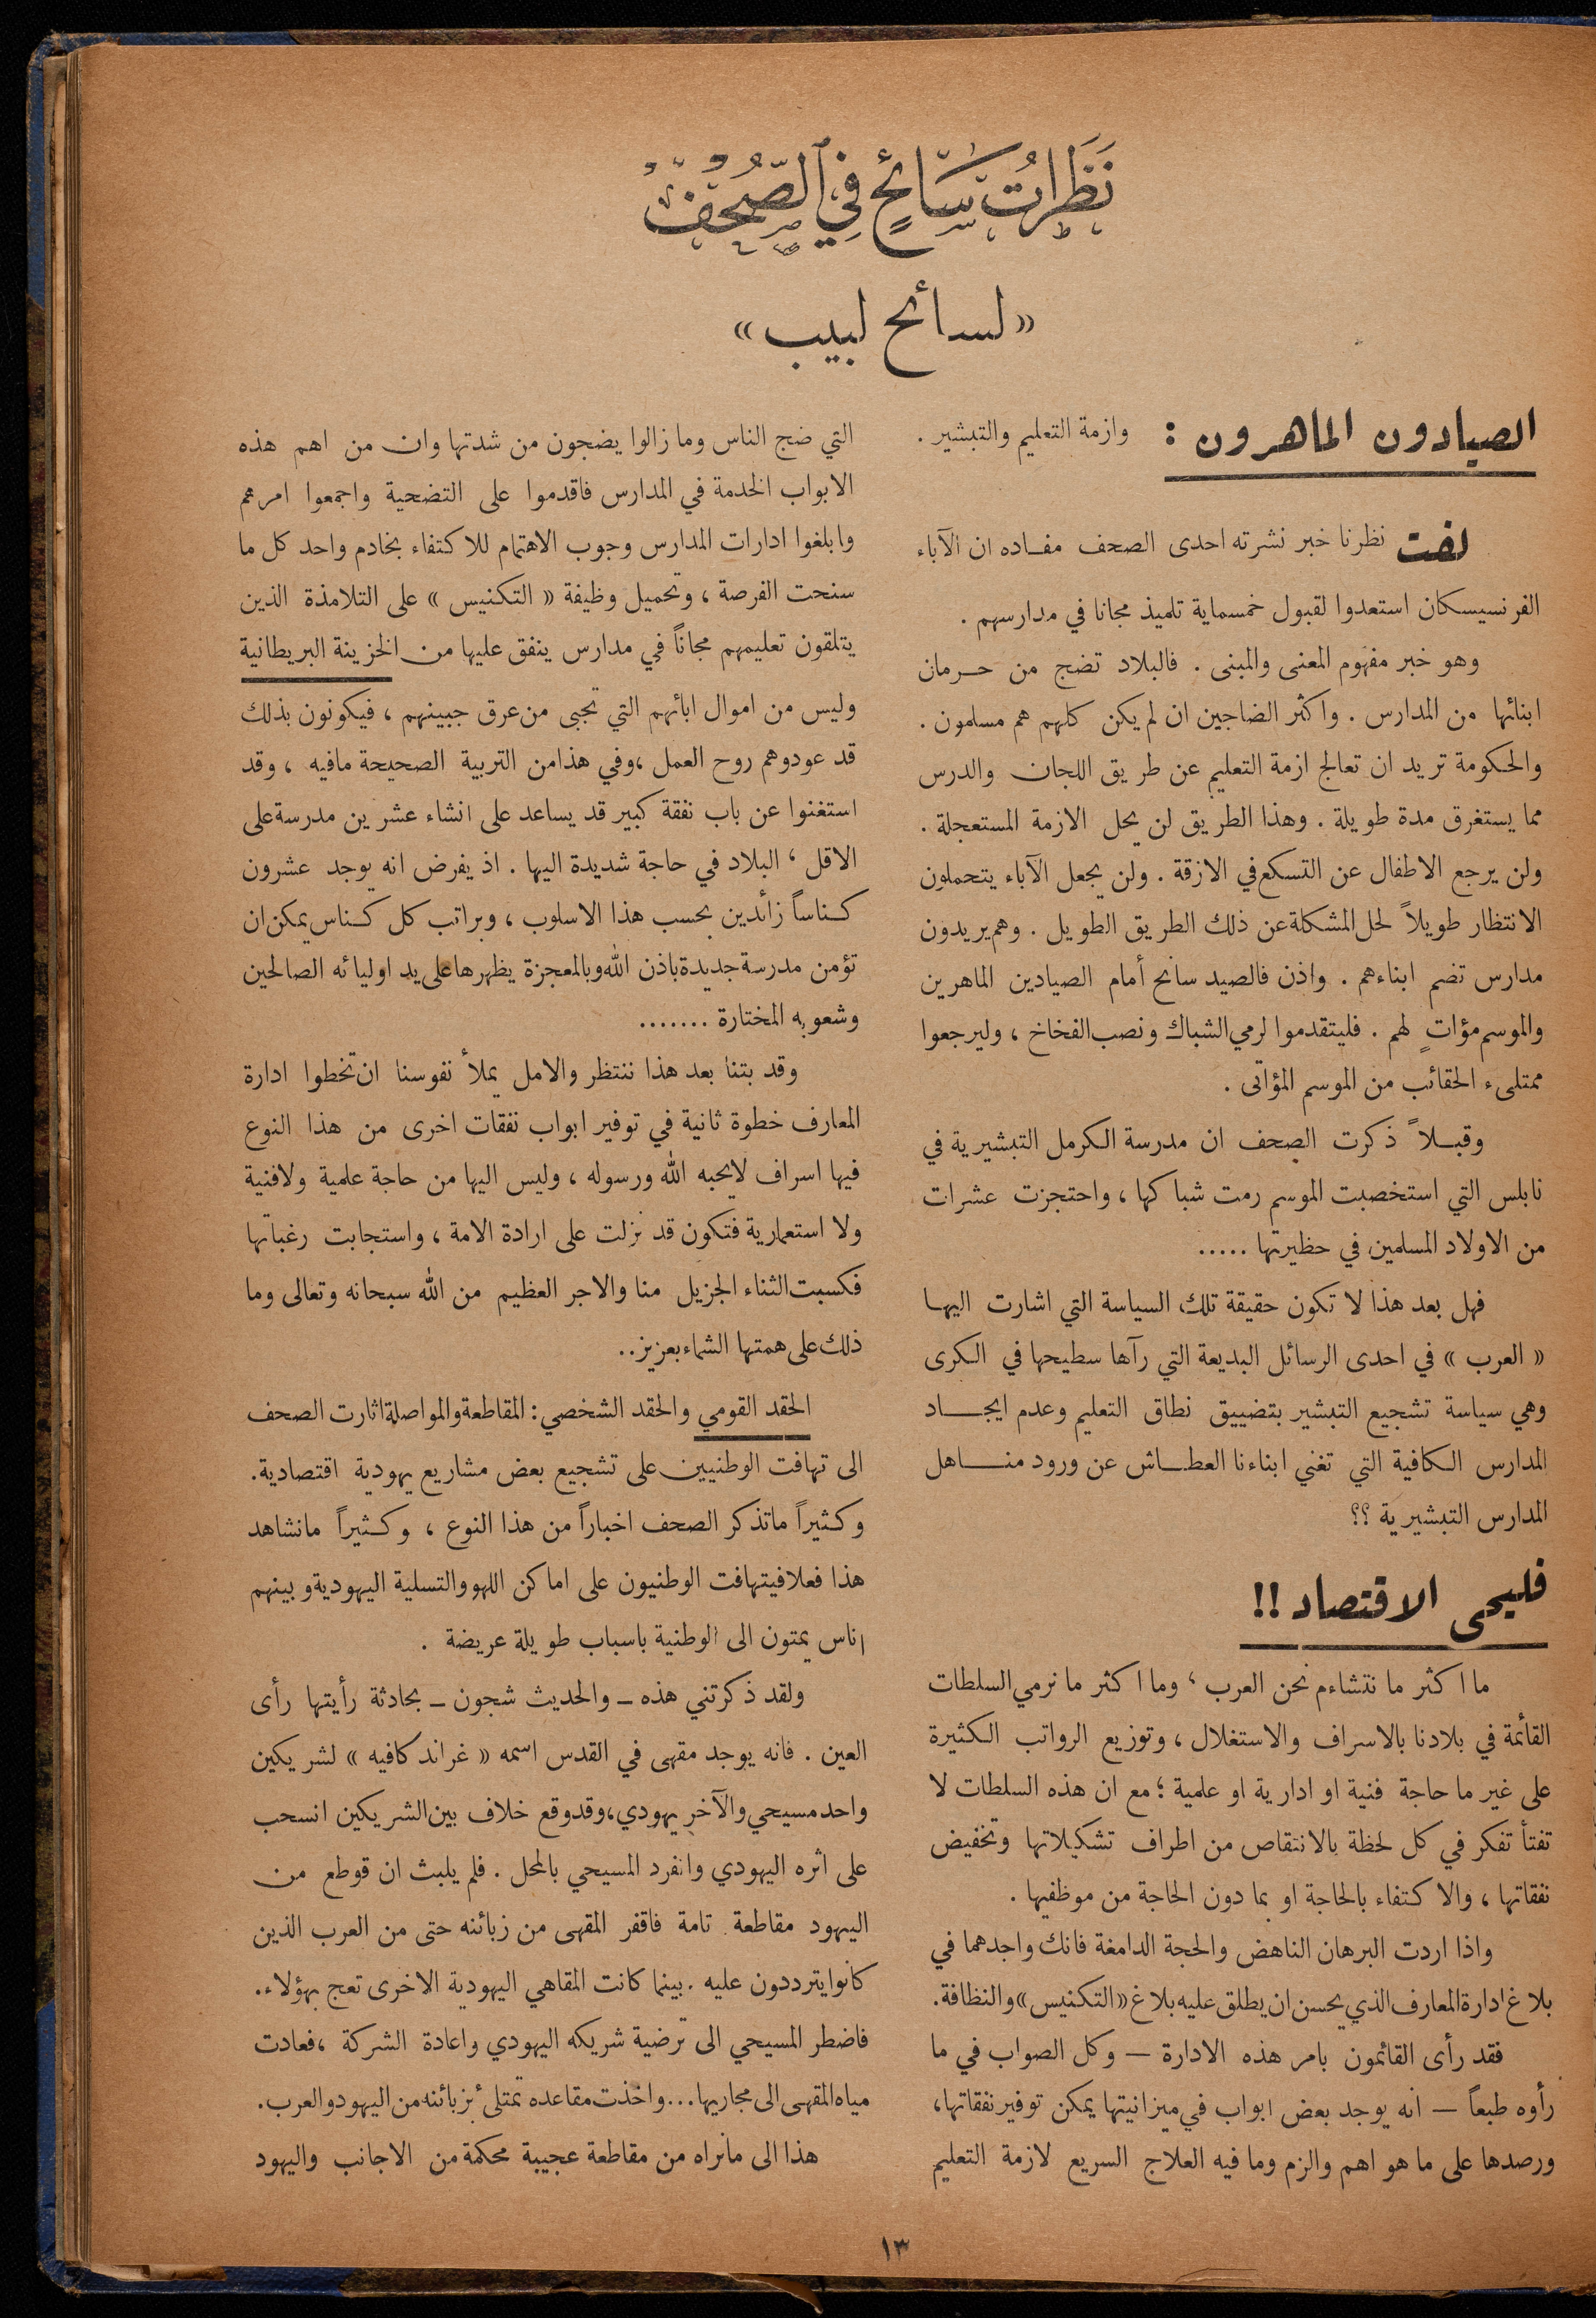 نَظَرَاتُ سَائِحٍ فِي الصُّحُفِ
«لسائح لبيب»
الصيادون الماهرون : وازمة التعليم والتبشير .
لفت نظرنا خبر نشرته احدى الصحف مفاده ان الآباء
الفرنسيسكان استعدوا لقبول خمسماية تلميذ مجانا في مدارسهم .
وهو خبر مفهوم المعنى والمبنى . فالبلاد تضج من حرمان
ابنائها من المدارس . واكثر الضاجين ان لم يكن كلهم هم مسلمون .
والحكومة تريد ان تعالج ازمة التعليم عن طريق اللجان والدرس
مما يستغرق مدة طويلة . وهذا الطريق لن يحل الازمة المستعجلة .
ولن يرجع الاطفال عن التسكع في الازقة . ولن يجعل الآباء يتحملون
الانتظار طويلاً لحل المشكلة عن ذلك الطريق الطويل . وهم يريدون
مدارس تضم ابناءهم . واذن فالصيد سانح أمام الصيادين الماهرين
والموسم مؤاتٍ لهم . فليتقدموا لرمي الشباك ونصب الفخاخ ، وليرجعوا
ممتلىء الحقائب من الموسم المؤاتى .
وقبلاً ذكرت الصحف ان مدرسة الكرمل التبشيرية في
نابلس التي استخصبت الموسم رمت شباكها ، واحتجزت عشرات
من الاولاد المسلمين في حظيرتها .....
فهل بعد هذا لا تكون حقيقة تلك السياسة التي اشارت اليها
« العرب » في احدى الرسائل البديعة التي رآها سطيحها في الكرى
وهي سياسة تشجيع التبشير بتضييق نطاق التعليم وعدم ايجاد
المدارس الكافية التي تغني ابناءنا العطاش عن ورود مناهل
المدارس التبشيرية ؟؟
فليحى الاقتصاد !!
ما اكثر ما نتشاءم نحن العرب ، وما اكثر ما نرمي السلطات
القائمة في بلادنا بالاسراف والاستغلال ، وتوزيع الرواتب الكثيرة
على غير ما حاجة فنية او ادارية او علمية ؛ مع ان هذه السلطات لا
تفتأ تفكر في كل لحظة بالانتقاص من اطراف تشكيلاتها وتخفيض
نفقاتها ، والاكتفاء بالحاجة او بما دون الحاجة من موظفيها .
واذا اردت البرهان الناهض والحجة الدامغة فانك واجدهما في
بلاغ ادارة المعارف الذي يحسن ان يطلق عليه بلاغ «التكنيس» والنظافة.
فقد رأى القائمون بامر هذه الادارة — وكل الصواب في ما
رأوه طبعاً — انه يوجد بعض ابواب في ميزانيتها يمكن توفير نفقاتها،
ورصدها على ما هو اهم والزم وما فيه العلاج السريع لازمة التعليم
التي ضج الناس وما زالوا يضجون من شدتها وان من اهم هذه
الابواب الخدمة في المدارس فاقدموا على التضحية واجمعوا امرهم
وابلغوا ادارات المدارس وجوب الاهتمام للاكتفاء بخادم واحد كل ما
سنحت الفرصة ، وتحميل وظيفة « التكنيس » على التلامذة الذين
يتلقون تعليمهم مجاناً في مدارس ينفق عليها من الخزينة البريطانية
وليس من اموال ابائهم التي تجبى من عرق جبينهم ، فيكونون بذلك
قد عودوهم روح العمل ،وفي هذا من التربية الصحيحة مافيه ، وقد
استغنوا عن باب نفقة كبير قد يساعد على انشاء عشرين مدرسة على
الاقل ، البلاد في حاجة شديدة اليها . اذ يفرض انه يوجد عشرون
كناساً زائدين بحسب هذا الاسلوب ، وبراتب كل كناس يمكن ان
تؤمن مدرسة جديدة باذن الله وبالمعجزة يظهرها على يد اوليائه الصالحين
وشعوبه المختارة .......
وقد بتنا بعد هذا ننتظر والامل يملأ نفوسنا ان تخطوا ادارة
المعارف خطوة ثانية في توفير ابواب نفقات اخرى من هذا النوع
فيها اسراف لايحبه الله ورسوله ، وليس اليها من حاجة علمية ولا فنية
ولا استعمارية فتكون قد نزلت على ارادة الامة ، واستجابت رغباتها
فكسبت الثناء الجزيل منا والاجر العظيم من الله سبحانه وتعالى وما
ذلك على همتها الشماء بعزيز..
الحقد القومي والحقد الشخصي: المقاطعة والمواصلة اثارت الصحف
الى تهافت الوطنيين على تشجيع بعض مشاريع يهودية اقتصادية.
وكثيراً ماتذكر الصحف اخباراً من هذا النوع ، وكثيراً مانشاهد
هذا فعلا فيتهافت الوطنيون على اماكن اللهو والتسلية اليهودية وبينهم
اناس يمتون الى الوطنية باسباب طويلة عريضة .
ولقد ذكرتني هذه ـ والحديث شجون ـ بحادثة رأيتها رأى
العين . فانه يوجد مقهى في القدس اسمه « غراند كافيه » لشريكين
واحد مسيحي والآخر يهودي، وقد وقع خلاف بين الشريكين انسحب
على اثره اليهودي وانفرد المسيحي بالمحل . فلم يلبث ان قوطع من
اليهود مقاطعة تامة فاقفر المقهى من زبائنه حتى من العرب الذين
كانوا يترددون عليه . بينما كانت المقاهي اليهودية الاخرى تعج بهؤلاء.
فاضطر المسيحي الى ترضية شريكه اليهودي واعادة الشركة ،فعادت
مياه المقهى الى مجاريها... واخذت مقاعده تمتلئ بزبائنه من اليهود والعرب.
هذا الى مانراه من مقاطعة عجيبة محكمة من الاجانب واليهود
١٣